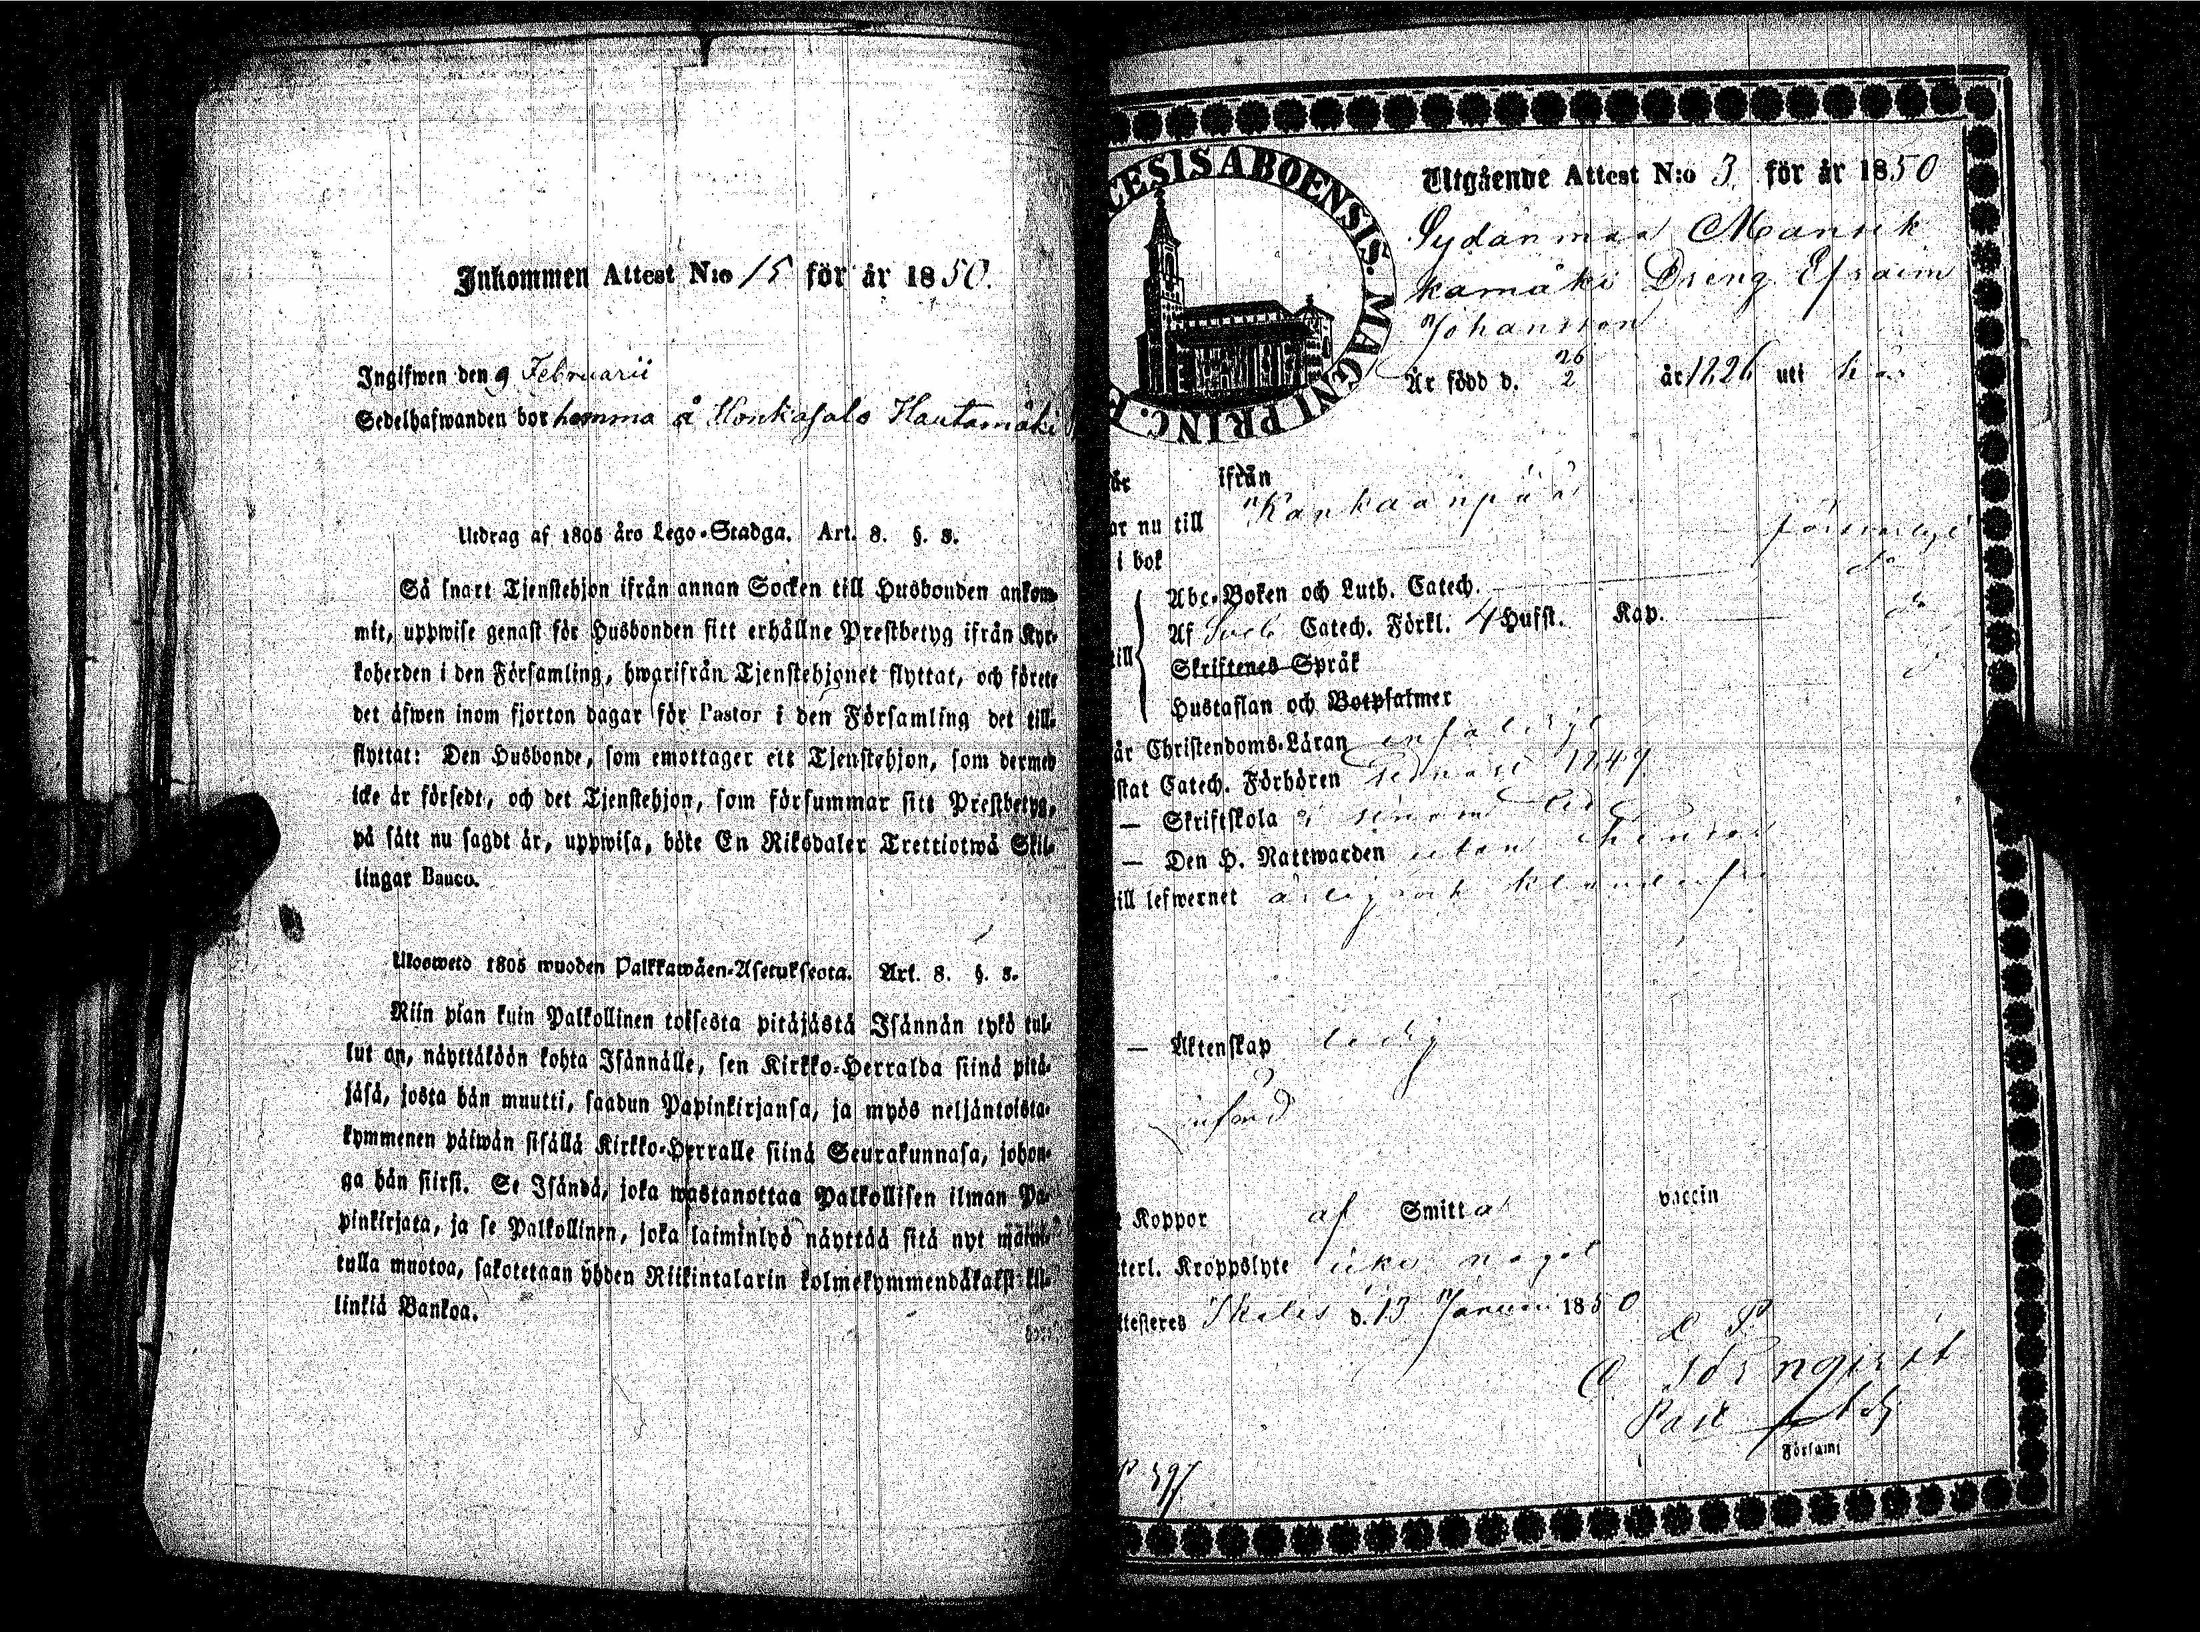 Inkommen Attest N:o 15 för år 1850.
Ingifwen den 9 Februarii
Sedelhafwanden bor hemma å Honkasalo Hautamäki
Utdrag af 1805 års Lego-Stadga. Art. 8. §. 8.
Så snart Tjenstehjon ifrån annan Socken till Husbonden ankom-
mit, uppwise genast för Husbonden sitt erhållne Prestbetyg ifrån Kyr-
koherden i den Församling, hwarifrån Tjenstehjonet flyttat, och förete
det äfwen inom fjorton dagar för Pastor i den Församling det till-
flyttat: Den Husbonde, som emottager ett Tjenstehjon, som dermed
icke är försedt, och det Tjenstehjon, som försummar sitt Prestbetyg,
på sätt nu sagdt är, uppwisa, böte En Riksdaler Trettiotwå Skil-
lingar Banco.
Uloswetо 1805 wuoden Palkkawäen-Asetuksesta. Art. 8. §. 8.
Niin pian kuin Palkollinen toisesta pitäjästä Isännän tykö tul-
lut on, näyttäköön kohta Isännälle, sen Kirkko-Herralda siinä pitä-
jäsä, josta hän muutti, saadun Papinkirjansa, ja myös neljäntoista-
kymmenen päiwän sisällä Kirkko-Herralle siinä Seurakunnasa, johon-
ga hän siirsi. Se Isändä, joka wastanottaa Palkollisen ilman Pa-
pinkirjata, ja se Palkollinen, joka laiminlyö näyttää sitä nyt
tulla muotoa, sakotetaan yhden Riikintalarin kolmekymmendäkaksi kil-
linkiä Bankoa.
CESIS ABOENSIS. MAGNI PRINC. F
Utgående Attest N:o 3 för år 1850
Sydänmaa Mansik
kamäki Dreng Efraim
Johansson
Är född d. 26/2 år 1826 uti här
är ifrån
ar nu till Kankaanpää
i bok försvarligt
Abc-Boken och Luth. Catech. do
Af Sveb Catech. Förkl. 4 Hufst. Kap. do
Skriftenes Språk
Hustaflan och Botpsalmer
är Christendoms-Läran enfaldigt
stat Catech. Förhören 1849
— Skriftskola i sinom tid
— Den H. Nattwarden utan
till lefwernet ärligt och
— Äktenskap ledig
Koppor af Smitta vaccin
terl. Kroppslyte icke något
ttesteres Ikalis d. 13 Januari 1850
Past Adj
Församl
P 397